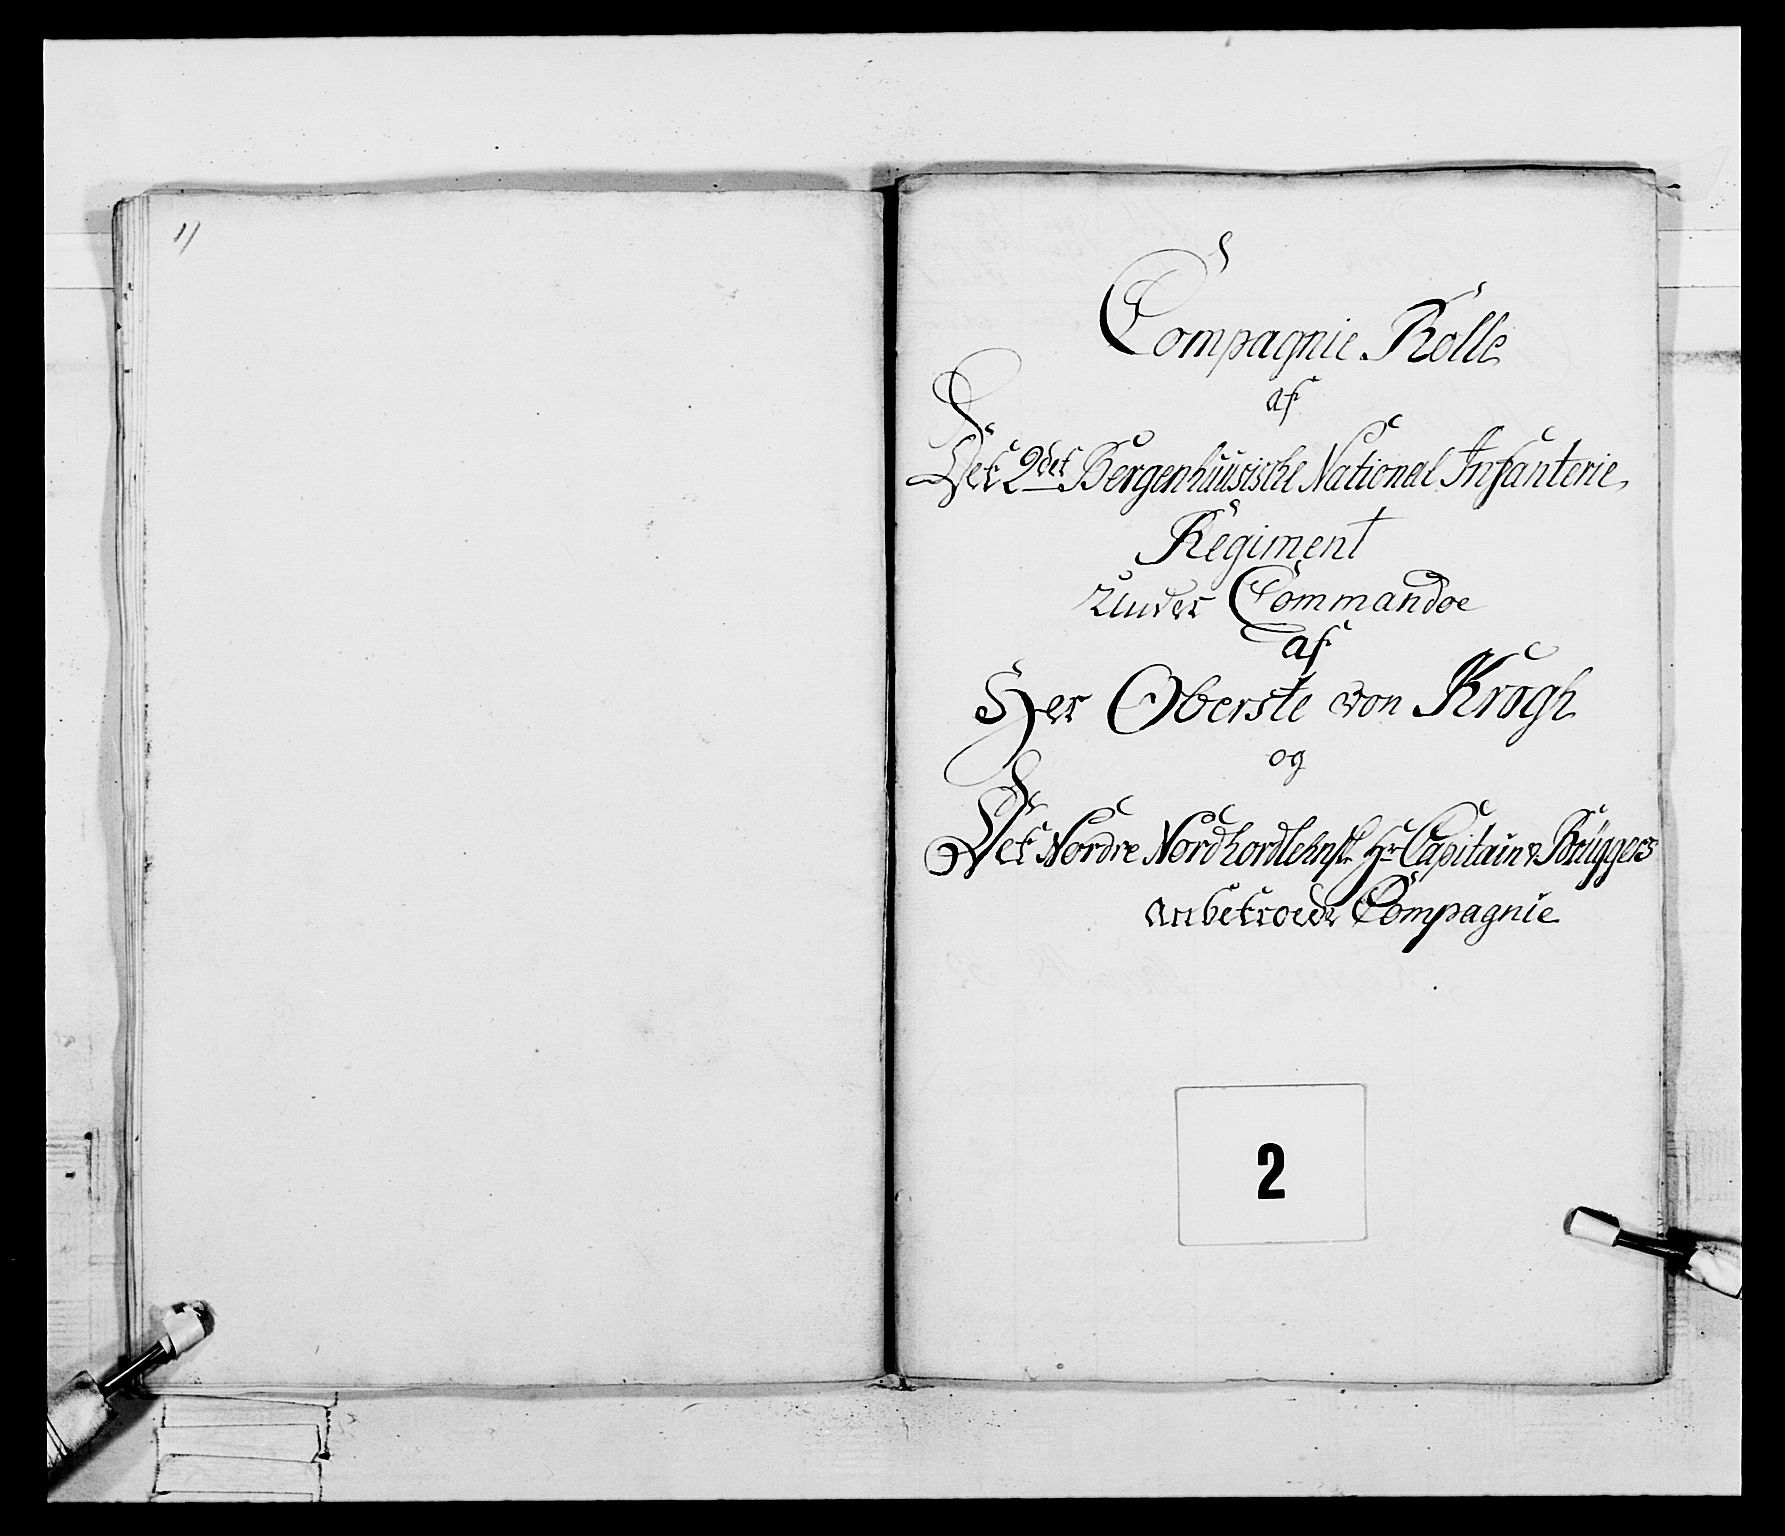 11
Compagnie Rolle
af
Det 2det Bergenhuusische National Infanterie
Regiment
Under Commandoe
af
Her Oberste von Krogh
og
Det Nordre Nordhordlehnske Hr Capitain v. Brüggers
anbetroede Compagnie
2